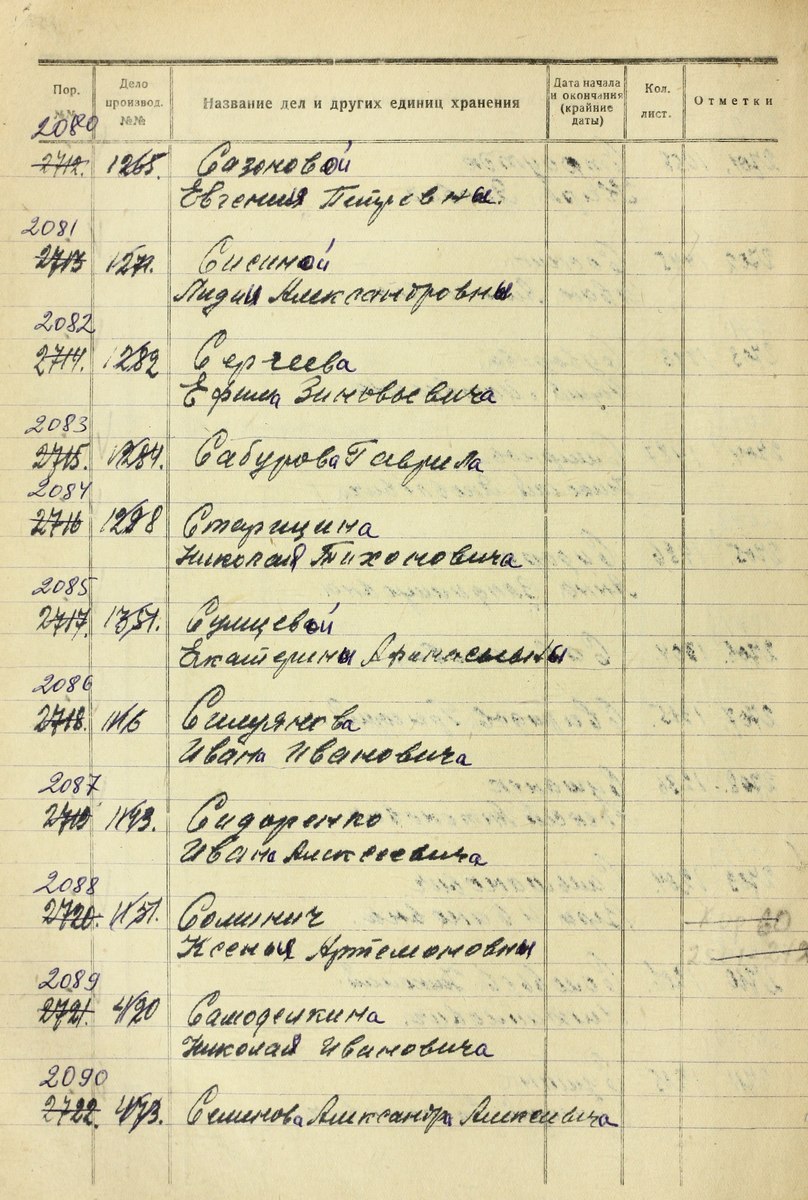 Пор. №№
Дело производ. №№
Название дел и других единиц хранения
Дата начала и окончания (крайние даты)
Кол. лист.
Отметки
2080
2712. 1265. Сазоновой
Евгения Петровны.
2081
2713 1271. Сисиной
Лидии Александровны
2082
2714. 1282 Сергеева
Ефима Зиновьевича
2083
2715. 1284. Сабурова Гаврила
2084
2716 1298 Старицина
Николая Тихоновича
2085
2717. 1351. Сумцевой
Екатерины Афанасьевны
2086
2718. Симрянова
Ивана Ивановича
2087
2719 Сидоренко
Ивана Алексеевича
2088
2720. Соминич
Ксения Артемоновны
2089
2721. Самоделкина
Николая Ивановича
2090
2722. Семенова Александра Алексеевича